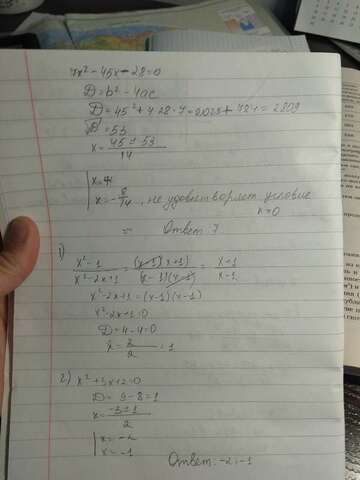 7x² - 45x - 28 = 0
D = b² - 4ac
D = 45² + 4·28·7 = 2025 + 784 = 2809
√D = 53
x = (45 ± 53)/14
x = 7
x = -8/14, не удовлетворяет условие
x > 0
Ответ 7
1)
(x² - 1)/(x² - 2x + 1) = ((x-1)(x+1))/((x-1)(x-1)) = (x+1)/(x-1)
x² - 2x + 1 = (x-1)(x-1)
x² - 2x + 1 = 0
D = 4 - 4 = 0
x = 2/2 = 1
2) x² + 3x + 2 = 0
D = 9 - 8 = 1
x = (-3 ± 1)/2
x = -2
x = -1
Ответ: -2; -1